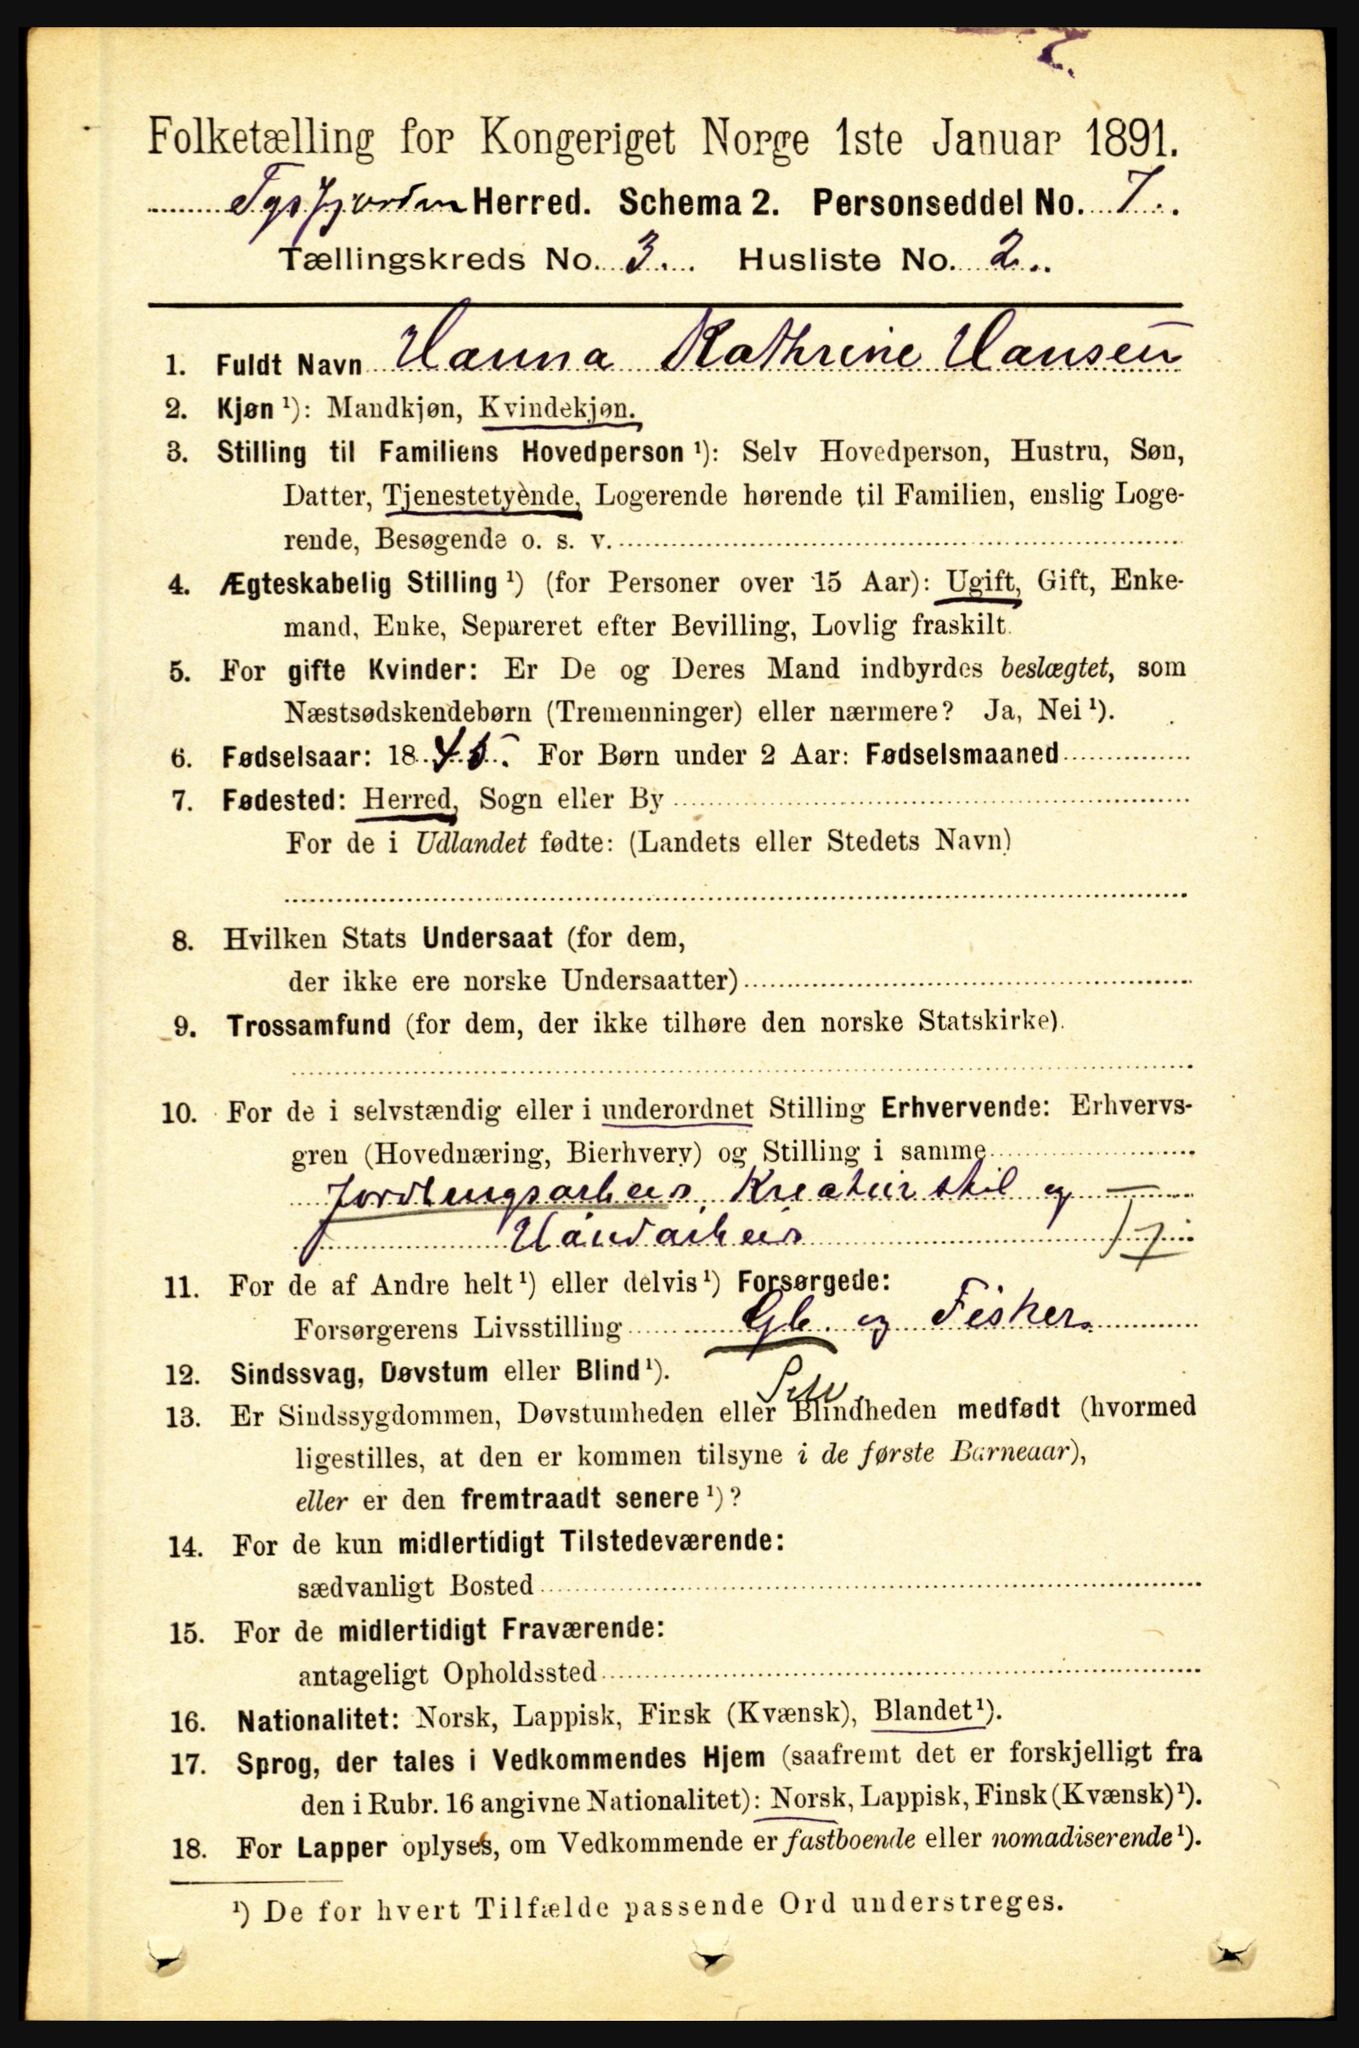 Folketælling for Kongeriget Norge 1ste Januar 1891.
Tysfjorden Herred. Schema 2. Personseddel No. 7.
Tællingskreds No. 3. Husliste No. 2.
1. Fuldt Navn Hanna Kathrine Hansen
2. Kjøn ¹): Mandkjøn, Kvindekjøn.
3. Stilling til Familiens Hovedperson ¹): Selv Hovedperson, Hustru, Søn,
Datter, Tjenestetyende, Logerende hørende til Familien, enslig Loge-
rende, Besøgende o. s. v.
4. Ægteskabelig Stilling ¹) (for Personer over 15 Aar): Ugift, Gift, Enke-
mand, Enke, Separeret efter Bevilling, Lovlig fraskilt.
5. For gifte Kvinder: Er De og Deres Mand indbyrdes beslægtet, som
Næstsødskendebørn (Tremenninger) eller nærmere? Ja, Nei ¹).
6. Fødselsaar: 1845. For Børn under 2 Aar: Fødselsmaaned
7. Fødested: Herred, Sogn eller By
For de i Udlandet fødte: (Landets eller Stedets Navn)
8. Hvilken Stats Undersaat (for dem,
der ikke ere norske Undersaatter)
9. Trossamfund (for dem, der ikke tilhøre den norske Statskirke).
10. For de i selvstændig eller i underordnet Stilling Erhvervende: Erhvervs-
gren (Hovednæring, Bierhverv) og Stilling i samme
Jordbrugsarbeid, Kreaturstel og
Haandarbeid
11. For de af Andre helt ¹) eller delvis ¹) Forsørgede:
Forsørgerens Livsstilling Gb. og Fisker.
12. Sindssvag, Døvstum eller Blind ¹).
13. Er Sindssygdommen, Døvstumheden eller Blindheden medfødt (hvormed
ligestilles, at den er kommen tilsyne i de første Barneaar),
eller er den fremtraadt senere ¹)?
14. For de kun midlertidigt Tilstedeværende:
sædvanligt Bosted
15. For de midlertidigt Fraværende:
antageligt Opholdssted
16. Nationalitet: Norsk, Lappisk, Finsk (Kvænsk), Blandet ¹).
17. Sprog, der tales i Vedkommendes Hjem (saafremt det er forskjelligt fra
den i Rubr. 16 angivne Nationalitet): Norsk, Lappisk, Finsk (Kvænsk) ¹).
18. For Lapper oplyses, om Vedkommende er fastboende eller nomadiserende ¹).
¹) De for hvert Tilfælde passende Ord understreges.